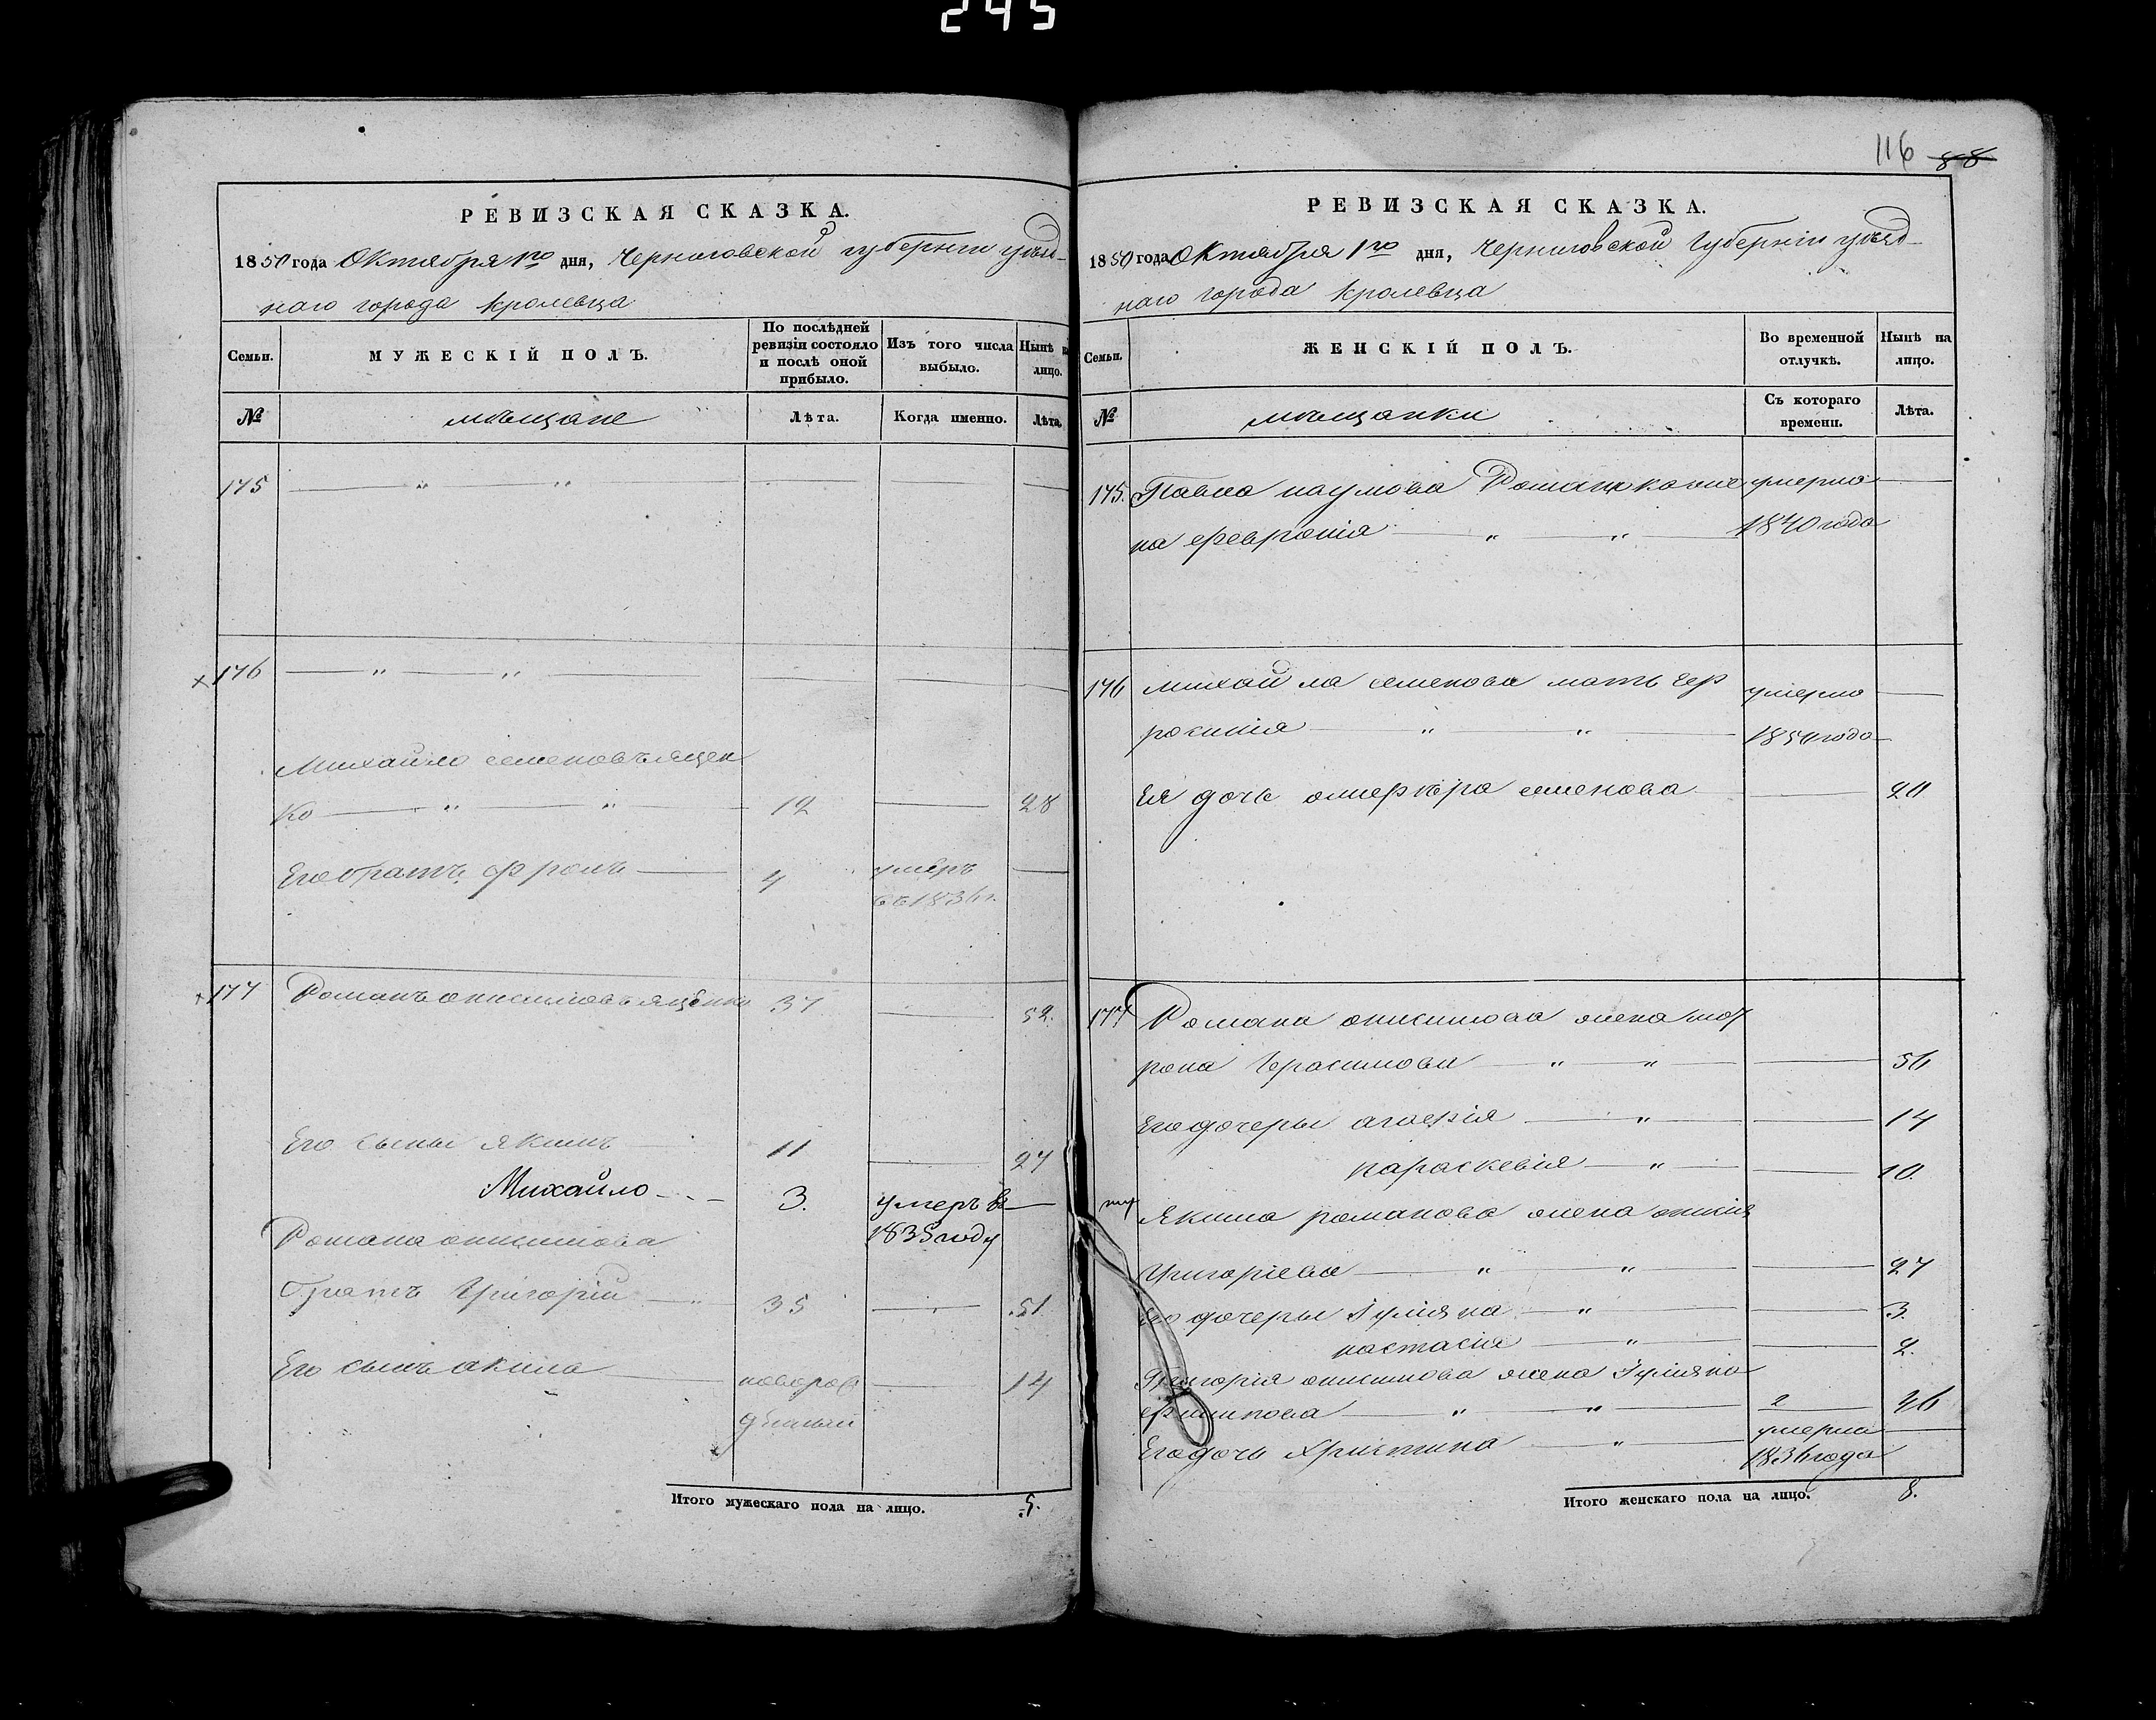 245
РЕВИЗСКАЯ СКАЗКА.
1850 года Октября 1го дня, Черниговской губернiи уѣзд-
наго города Кролевца
Семьи.
МУЖЕСКІЙ ПОЛЪ.
По послѣдней ревизіи состояло и послѣ оной прибыло.
Изъ того числа выбыло.
Нынѣ на лицо.
№
мѣщане
Лѣта.
Когда именно.
Лѣта.
175
176
Михайло семеновъ яцен
ко 12 28
Его братъ фролъ 4 умеръ
въ 1836 г.
177 Романъ онисимовъ яценко 37 52.
Его сыны якимъ 11 27
Михайло 3. умеръ въ
1835 году
Романа онисимова
братъ Григорій 35 51.
Его сынъ акила новорож 14
денный
Итого мужескаго пола на лицо. 5.
116 88
РЕВИЗСКАЯ СКАЗКА.
1850 года Октября 1го дня, Черниговской Губерніи уѣзд-
наго города Кролевца
Семьи.
ЖЕНСКІЙ ПОЛЪ.
Во временной отлучкѣ.
Нынѣ на лицо.
№
мѣщанки
Съ котораго времени.
Лѣта.
175. Павла наумова умерла
на феврония 1840 года
176 Михайла семенова мать умерла
1850 года
Ея дочь семенова 20
177 Романа онисимова жена мот
рона Герасимова 56
Его дочеры агафія 14
параскевія 10.
Якима романова жена
Григоріева 27
Его дочеры Іуліяна 3.
настасія 2.
Григорія онисимова жена Іуліяна
филипова 46
Его дочь Христина умерла
1836 года
Итого женскаго пола на лицо. 8.